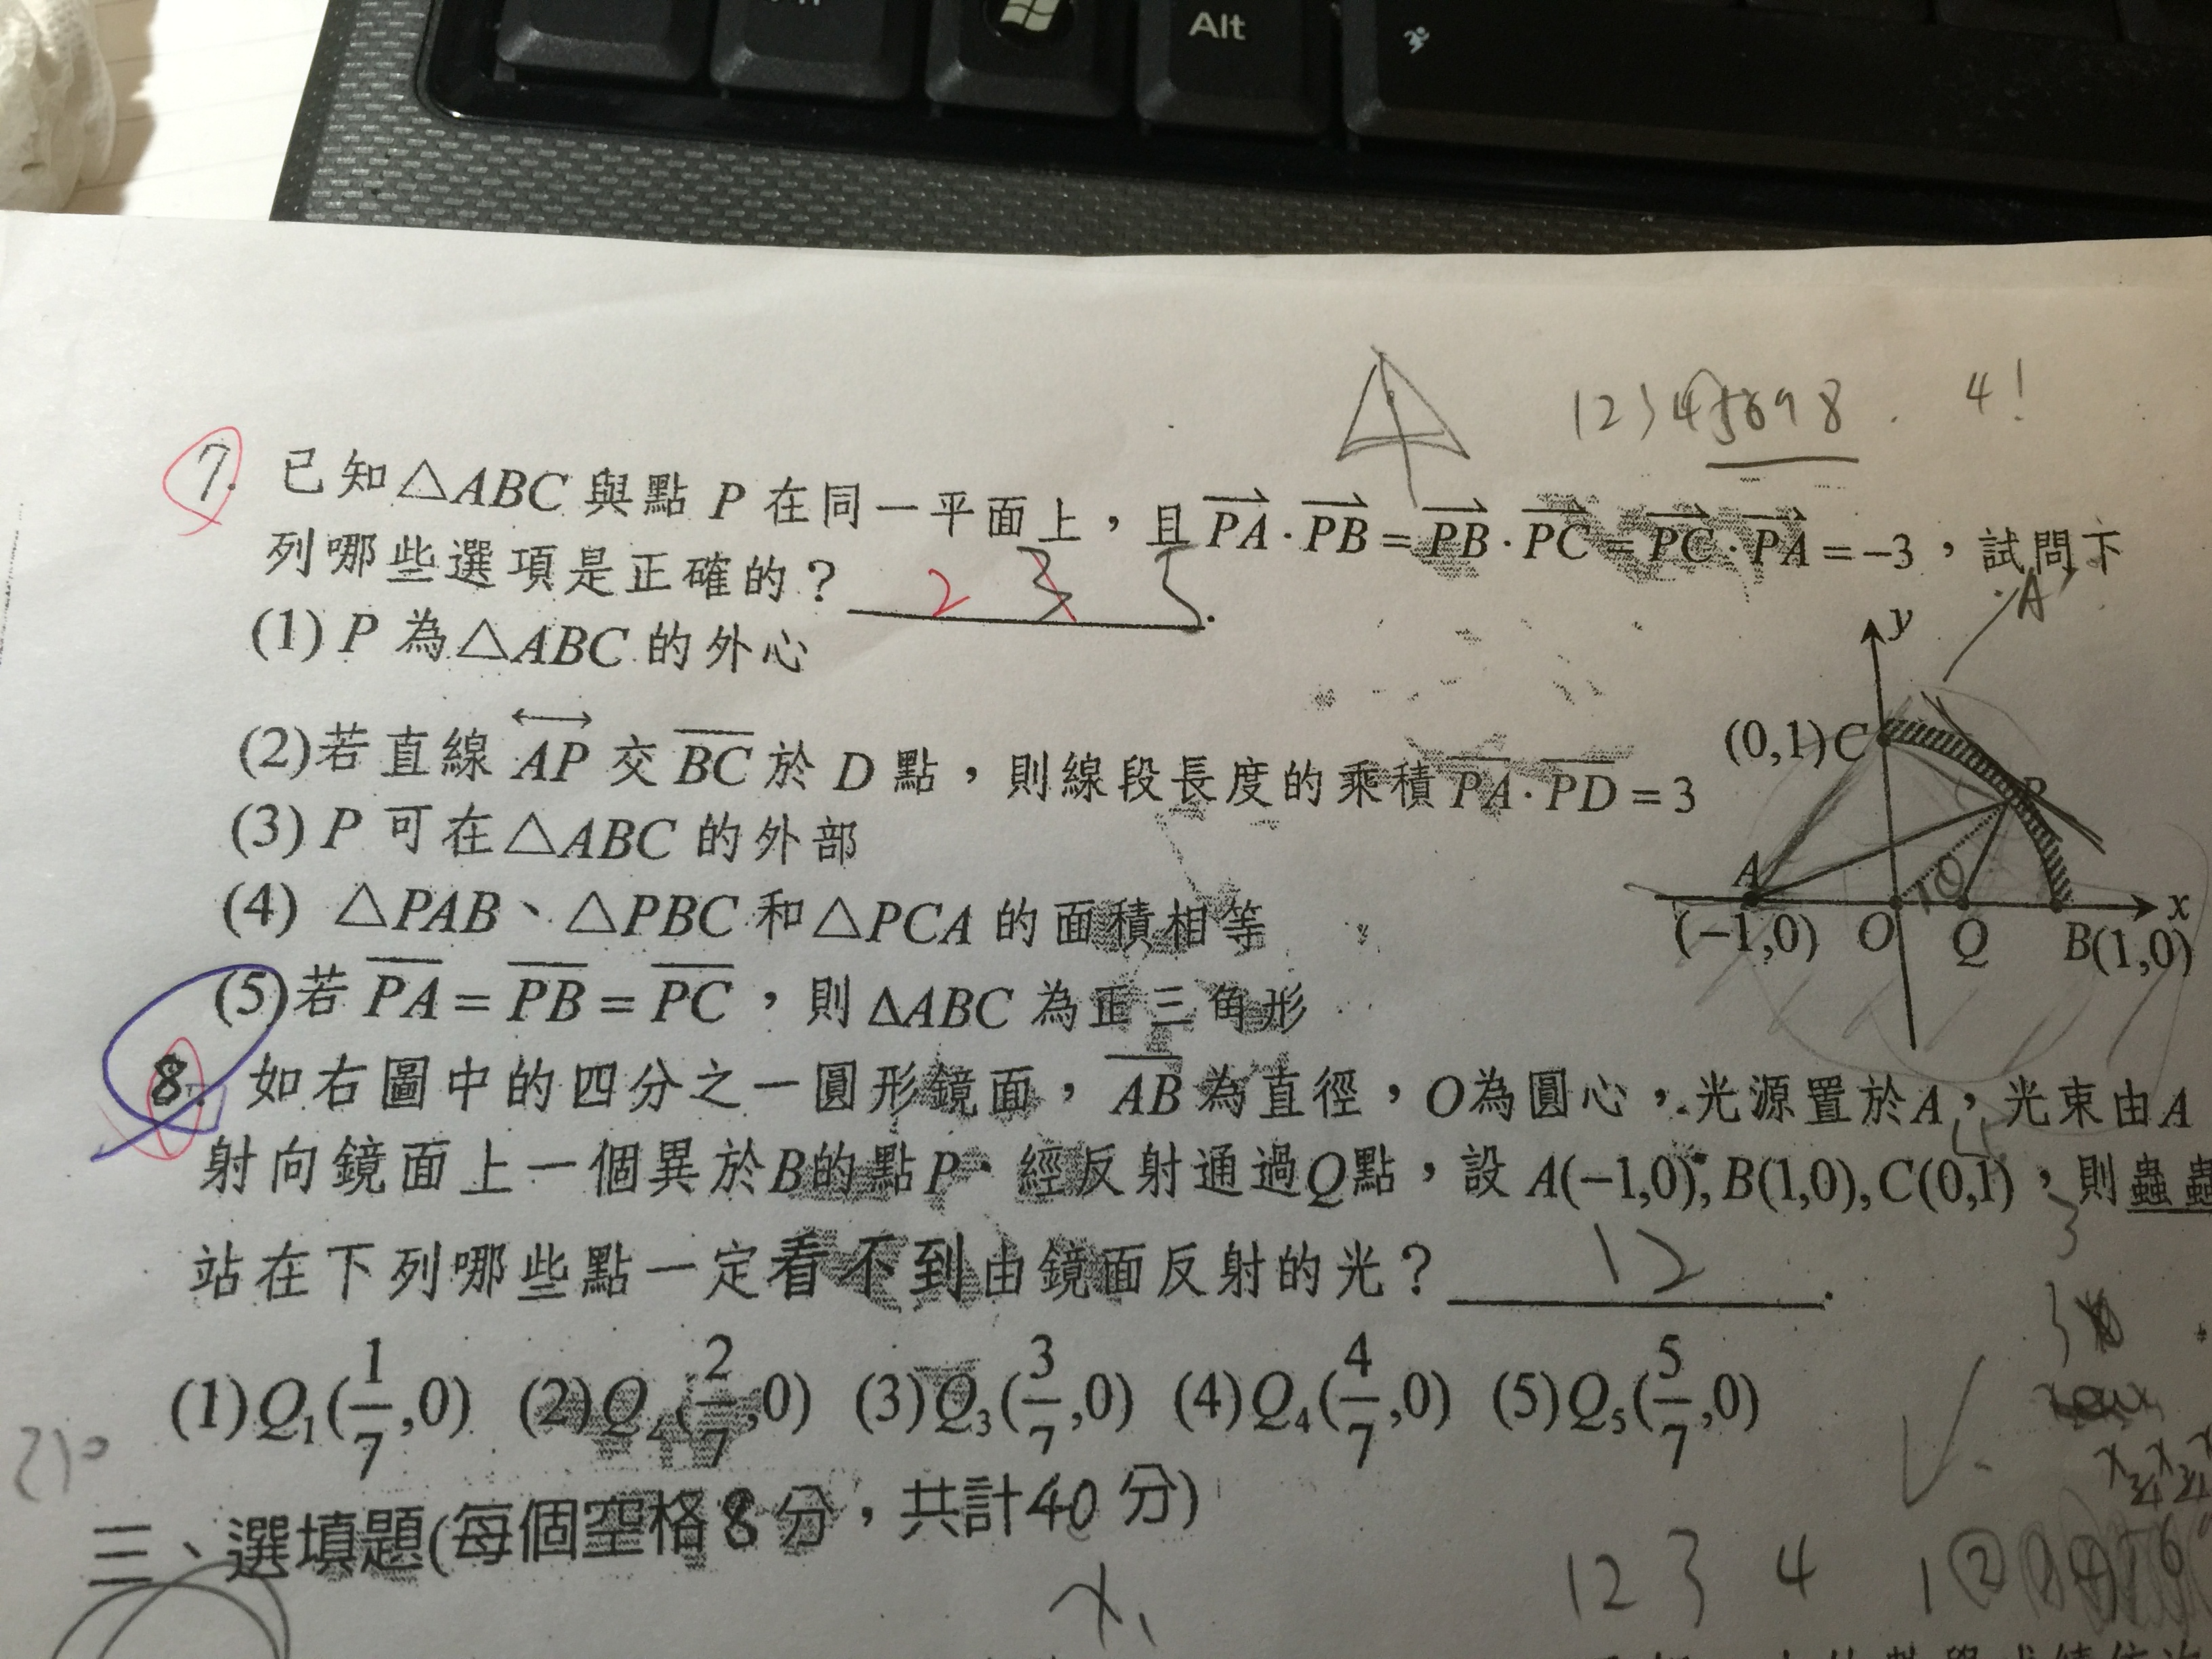 Alt
1 2 3 4
4!
7. 已知△ABC 與點 P 在同一平面上，且 PA·PB = PB·PC = PC·PA = −3，試問下
列哪些選項是正確的？ 2 3 5 .
A
(1) P 為△ABC 的外心
y
(2)若直線 AP 交 BC 於 D 點，則線段長度的乘積 PA·PD = 3
(0,1) C
P
(3) P 可在△ABC 的外部
A
(4) △PAB、△PBC 和△PCA 的面積相等
x
(−1,0) O Q B(1,0)
(5)若 PA = PB = PC，則 ΔABC 為正三角形
8. 如右圖中的四分之一圓形鏡面，AB 為直徑，O為圓心，光源置於A，光束由A
射向鏡面上一個異於B的點P，經反射通過Q點，設 A(−1,0), B(1,0), C(0,1)，則蟲蟲
站在下列哪些點一定看不到由鏡面反射的光？ 12 .
3
(1)Q₁(1/7,0) (2)Q₂(2/7,0) (3)Q₃(3/7,0) (4)Q₄(4/7,0) (5)Q₅(5/7,0)
三、選填題(每個空格8分，共計40分)
12 3 4